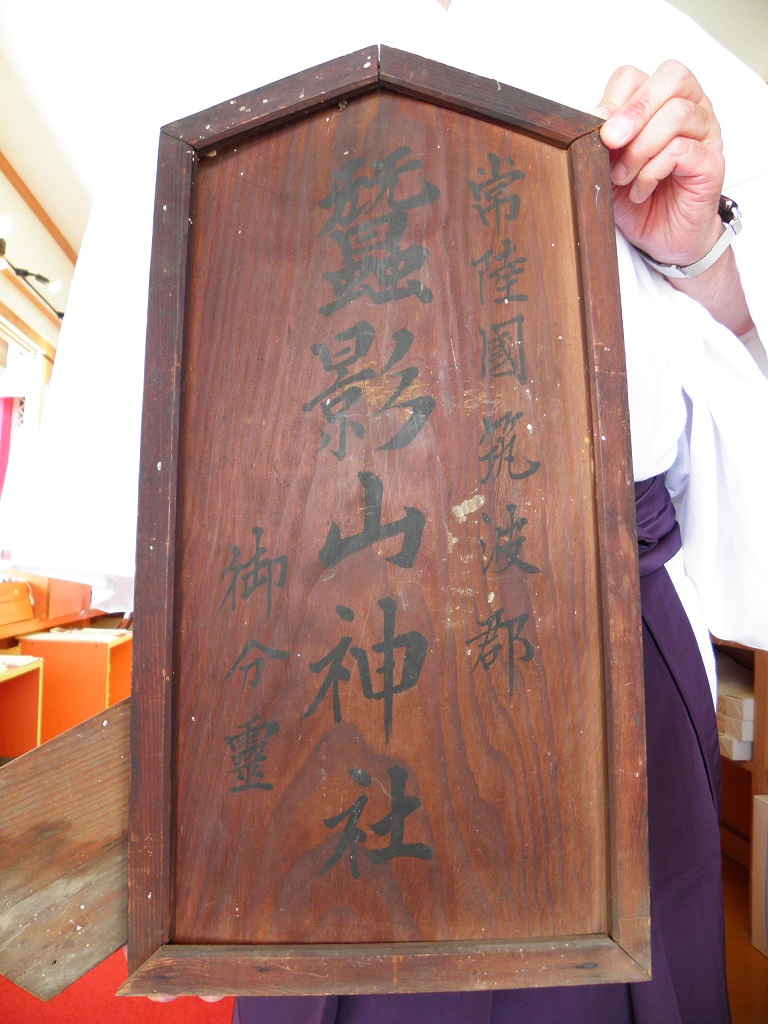 常陸國筑波郡
蠶影山神社
御分靈